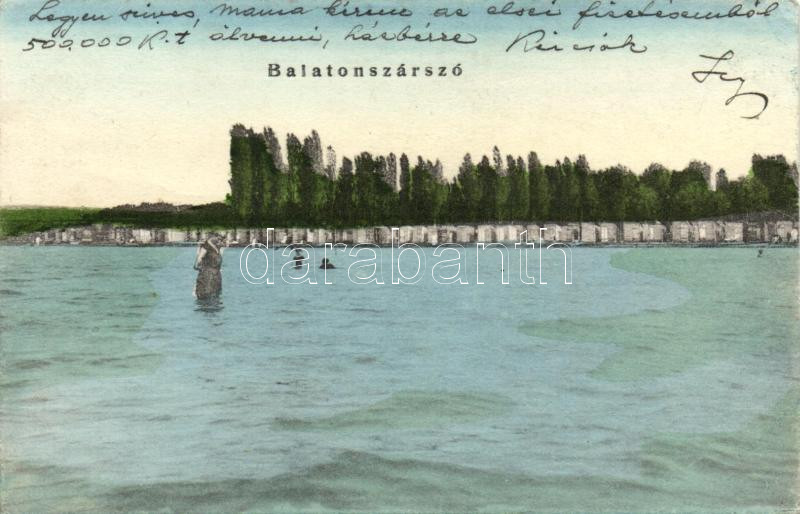 Legyen szives, mama kérem az elsei fizetésemből
500,000 K.t átvenni, házbérre
Balatonszárszó
darabanth